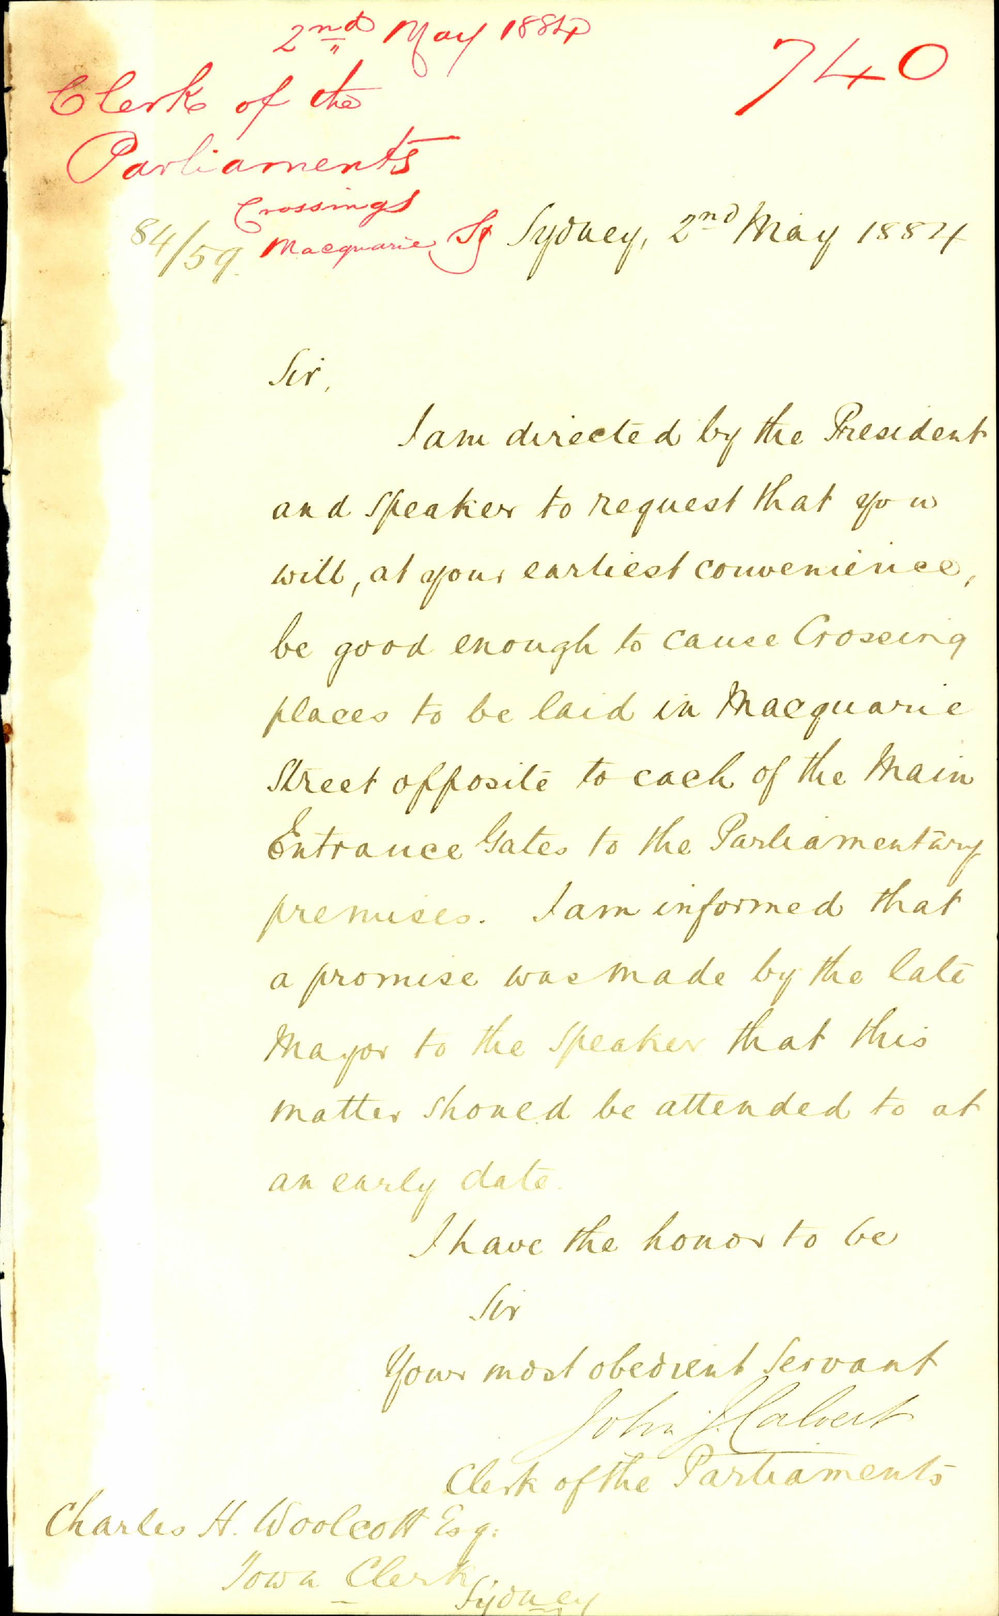 2nd May 1884
740
Clerk of the
Parliaments
Crossings
Macquarie St
84/59.
Sydney, 2nd May 1884
Sir,
I am directed by the President
and Speaker to request that you
will, at your earliest convenience,
be good enough to cause Crossing
places to be laid in Macquarie
Street opposite to each of the Main
Entrance Gates to the Parliamentary
premises. I am informed that
a promise was made by the late
Mayor to the Speaker that this
matter should be attended to at
an early date.
I have the honor to be
Sir
Your most obedient Servant
John J. Calvert
Clerk of the Parliaments
Charles H. Woolcott Esq:
Town Clerk
Sydney